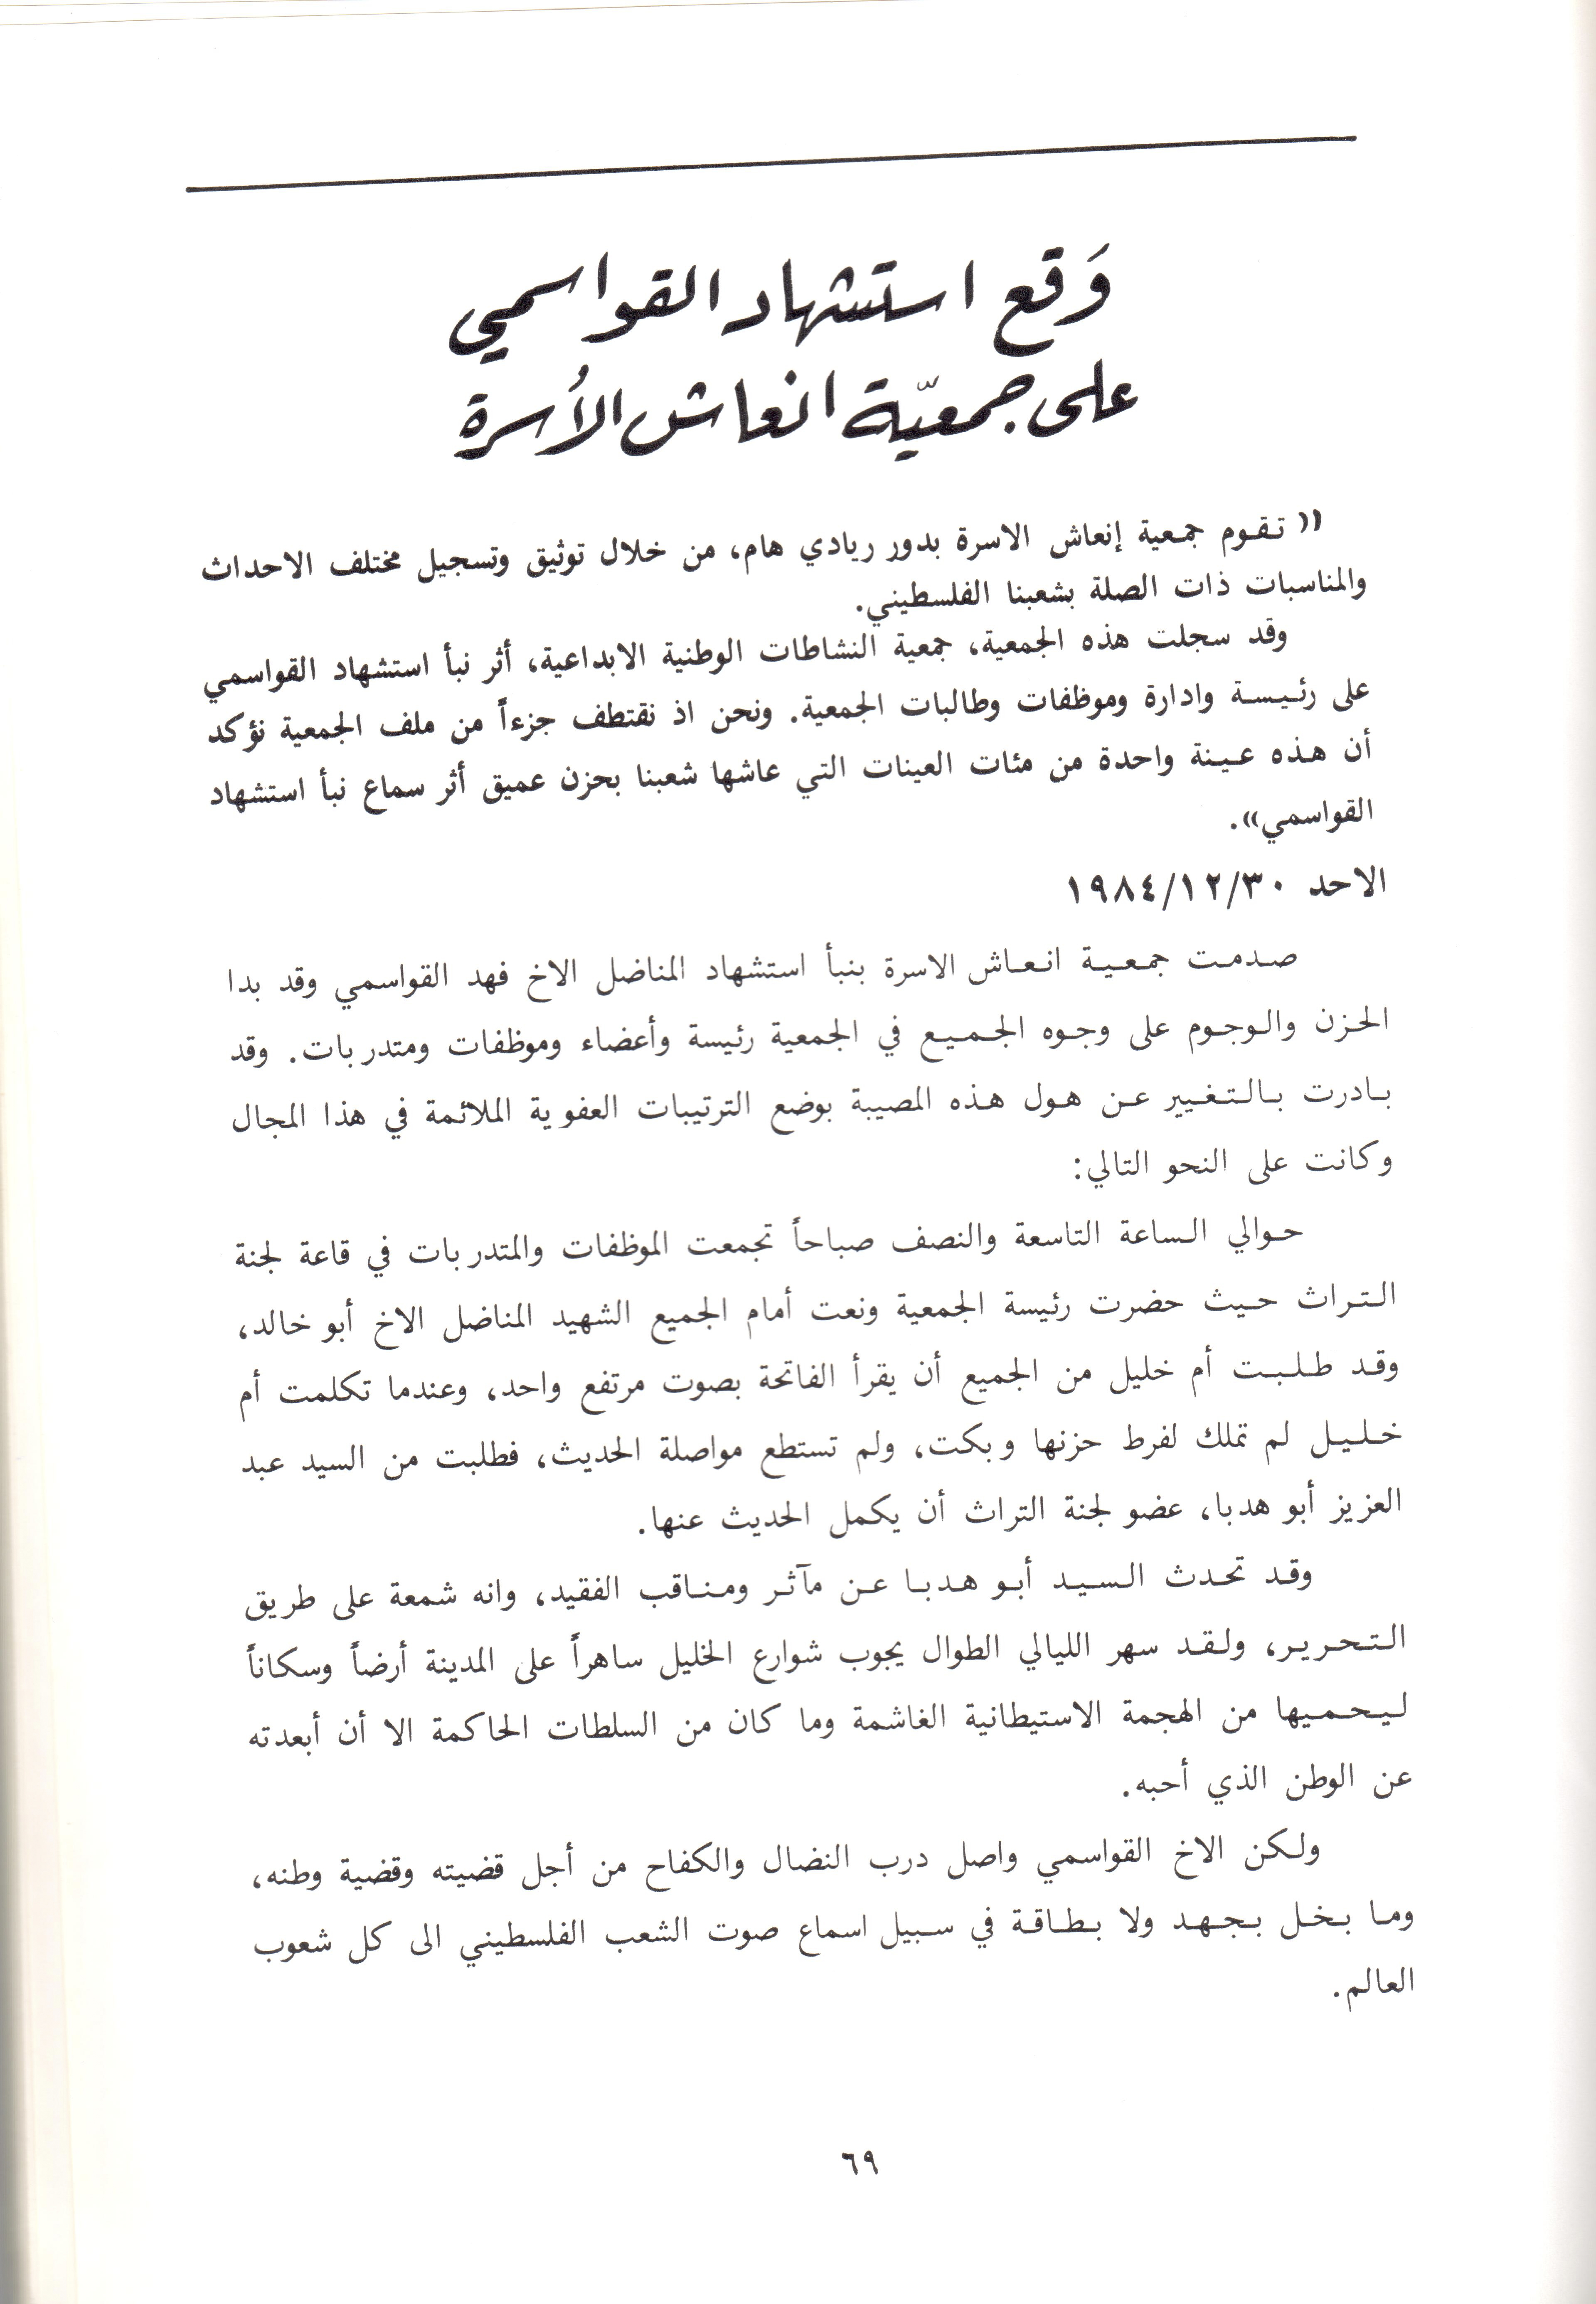 وَقع استشهاد القواسمي
على جمعيّة انعاش الأسرة
«تقوم جمعية إنعاش الاسرة بدور ريادي هام، من خلال توثيق وتسجيل مختلف الاحداث
والمناسبات ذات الصلة بشعبنا الفلسطيني.
وقد سجلت هذه الجمعية، جمعية النشاطات الوطنية الابداعية، أثر نبأ استشهاد القواسمي
على رئيسة وادارة وموظفات وطالبات الجمعية. ونحن اذ نقتطف جزءاً من ملف الجمعية نؤكد
أن هذه عينة واحدة من مئات العينات التي عاشها شعبنا بحزن عميق أثر سماع نبأ استشهاد
القواسمي».
الاحد ١٩٨٤/١٢/٣٠
صدمت جمعية انعاش الاسرة بنبأ استشهاد المناضل الاخ فهد القواسمي وقد بدا
الحزن والوجوم على وجوه الجميع في الجمعية رئيسة وأعضاء وموظفات ومتدربات. وقد
بادرت بالتغيير عن هول هذه المصيبة بوضع الترتيبات العفوية الملائمة في هذا المجال
وكانت على النحو التالي:
حوالي الساعة التاسعة والنصف صباحاً تجمعت الموظفات والمتدربات في قاعة لجنة
التراث حيث حضرت رئيسة الجمعية ونعت أمام الجميع الشهيد المناضل الاخ أبو خالد،
وقد طلبت أم خليل من الجميع أن يقرأ الفاتحة بصوت مرتفع واحد، وعندما تكلمت أم
خليل لم تملك لفرط حزنها وبكت، ولم تستطع مواصلة الحديث، فطلبت من السيد عبد
العزيز أبو هدبا، عضو لجنة التراث أن يكمل الحديث عنها.
وقد تحدث السيد أبو هدبا عن مآثر ومناقب الفقيد، وانه شمعة على طريق
التحرير، ولقد سهر الليالي الطوال يجوب شوارع الخليل ساهراً على المدينة أرضاً وسكاناً
ليحميها من الهجمة الاستيطانية الغاشمة وما كان من السلطات الحاكمة الا أن أبعدته
عن الوطن الذي أحبه.
ولكن الاخ القواسمي واصل درب النضال والكفاح من أجل قضيته وقضية وطنه،
وما بخل بجهد ولا بطاقة في سبيل اسماع صوت الشعب الفلسطيني الى كل شعوب
العالم.
٦٩